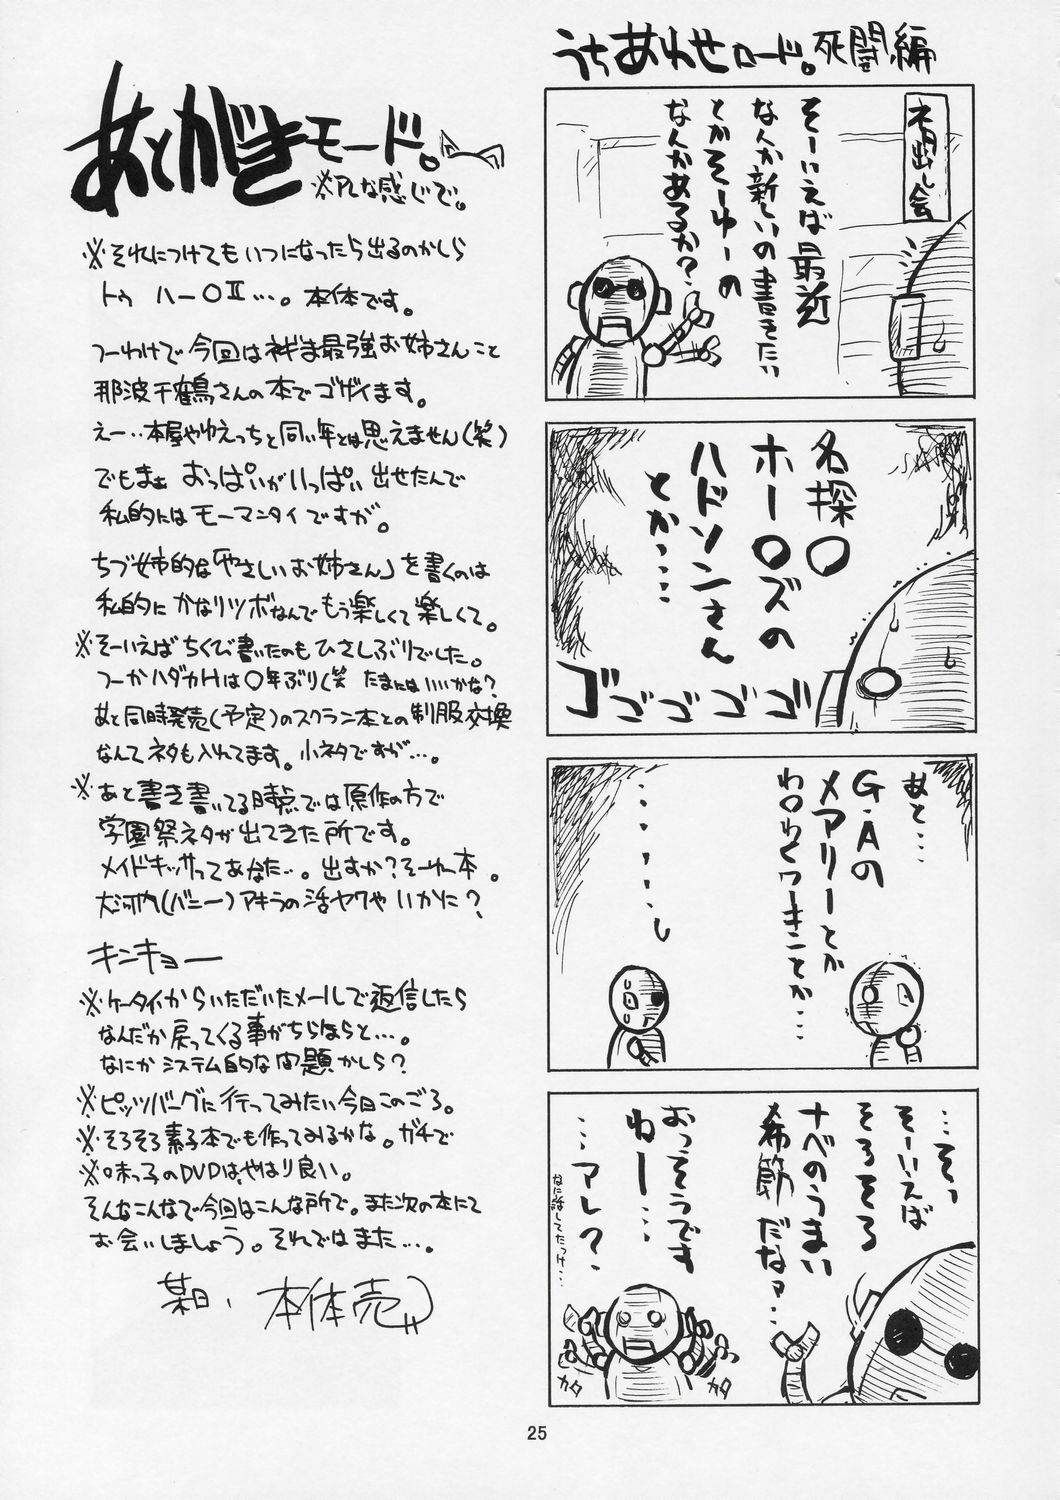 うちあわせロード。死闘編
ネタ出し会
そーいえば最近
なんか新しいの書きたい
とかそーゆーの
なんかあるか?
名探〇
ホー〇ズの
ハドソンさん
とか…
ゴゴゴゴゴ
あと…
G・Aの
メアリーとか
わ〇わくワーキンことか…
…そっ
そーいえば
そろそろ
ナベのうまい
季節だなァ…
おっそうです
ねー…
…アレ?
なに話してたっけ…
カタ
カタ
あとがきモード。
※アレな感じで。
※それにつけてもいつになったら出るのかしら
トゥ ハー〇Ⅱ…。本体です。
つーわけで今回はネギま最強お姉さんこと
那波千鶴さんの本でゴザイます。
えー‥本屋やゆえっちと同い年とは思えません(笑)
でもまぁ おっぱいがいっぱい出せたんで
私的にはモーマンタイですが。
ちづ姉的な「やさしいお姉さん」を書くのは
私的にかなりツボなんでもう楽しくて楽しくて。
※そーいえばちくび書いたのもひさしぶりでした。
つーかハダカHは〇年ぶり(笑 たまにはいいかな?
あと同時発売(予定)のスクラン本との制服交換
なんてネタも入れてます。小ネタですが…。
※あと書き書いてる時点では原作の方で
学園祭ネタが出てきた所です。
メイドキッサってあなた…。出すか?そーゆー本。
大河内(バニー)アキラの活ヤクやいかに?
キンキョー
※ケータイからいただいたメールで返信したら
なんだか戻ってくる事がちらほらと…。
なにかシステム的な問題かしら?
※ピッツバーグに行ってみたい今日このごろ。
※そろそろ素子本でも作ってみるかな。ガチで
※〇味っ子のDVDは、やはり良い。
そんなこんなで今回はこんな所で。また次の本にて
お会いしましょう。それではまた…。
某日、本体売
25